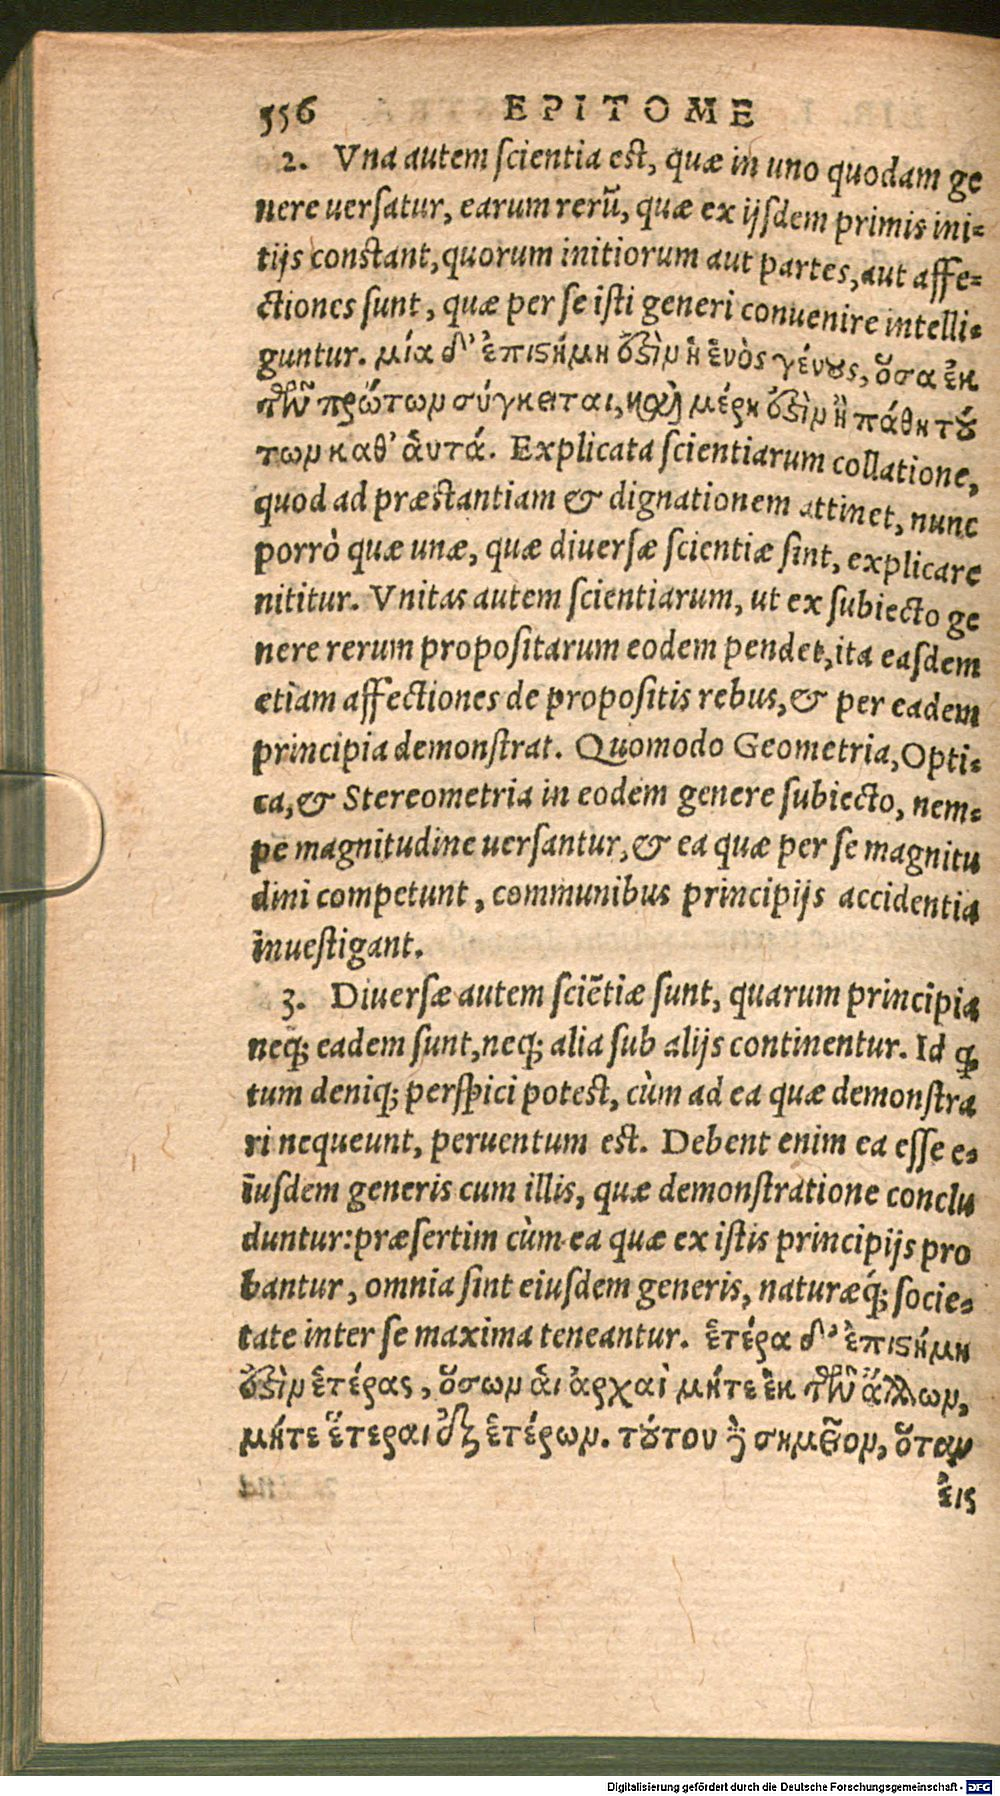 556 EPITOME
2. Vna autem scientia est, quæ in uno quodam ge
nere uersatur, earum rerū, quæ ex ijsdem primis ini-
tijs constant, quorum initiorum aut partes, aut affe-
ctiones sunt, quæ per se isti generi conuenire intelli-
guntur. μία δ' ἐπιστήμη ἐστὶν ἡ ἑνὸς γένους, ὅσα ἐκ
τῶν πρώτων σύγκειται, καὶ μέρη ἐστὶν ἢ πάθη τού
των καθ' ἁυτά. Explicata scientiarum collatione,
quod ad præstantiam & dignationem attinet, nunc
porrò quæ unæ, quæ diuersæ scientiæ sint, explicare
nititur. Vnitas autem scientiarum, ut ex subiecto ge
nere rerum propositarum eodem pendet, ita easdem
etiam affectiones de propositis rebus, & per eadem
principia demonstrat. Quomodo Geometria, Opti-
ca, & Stereometria in eodem genere subiecto, nem-
pe magnitudine uersantur, & ea quæ per se magnitu
dini competunt, communibus principijs accidentia
inuestigant.
3. Diuersæ autem sciētiæ sunt, quarum principia
neq; eadem sunt, neq; alia sub alijs continentur. Id q̃
tum deniq; perspici potest, cùm ad ea quæ demonstra
ri nequeunt, peruentum est. Debent enim ea esse e-
iusdem generis cum illis, quæ demonstratione conclu
duntur: præsertim cùm ea quæ ex istis principijs pro
bantur, omnia sint eiusdem generis, naturæq́; socie-
tate inter se maxima teneantur. ἑτέρα δ' ἐπιστήμη
ἐστὶν ἑτέρας, ὅσων ἁι ἀρχαὶ μήτε ἐκ τῶν ἄλλων,
μήτε ἕτεραι ἐξ ἑτέρων. τούτου δὲ σημεῖον, ὅταν
ἐις
Digitalisierung gefördert durch die Deutsche Forschungsgemeinschaft - DFG